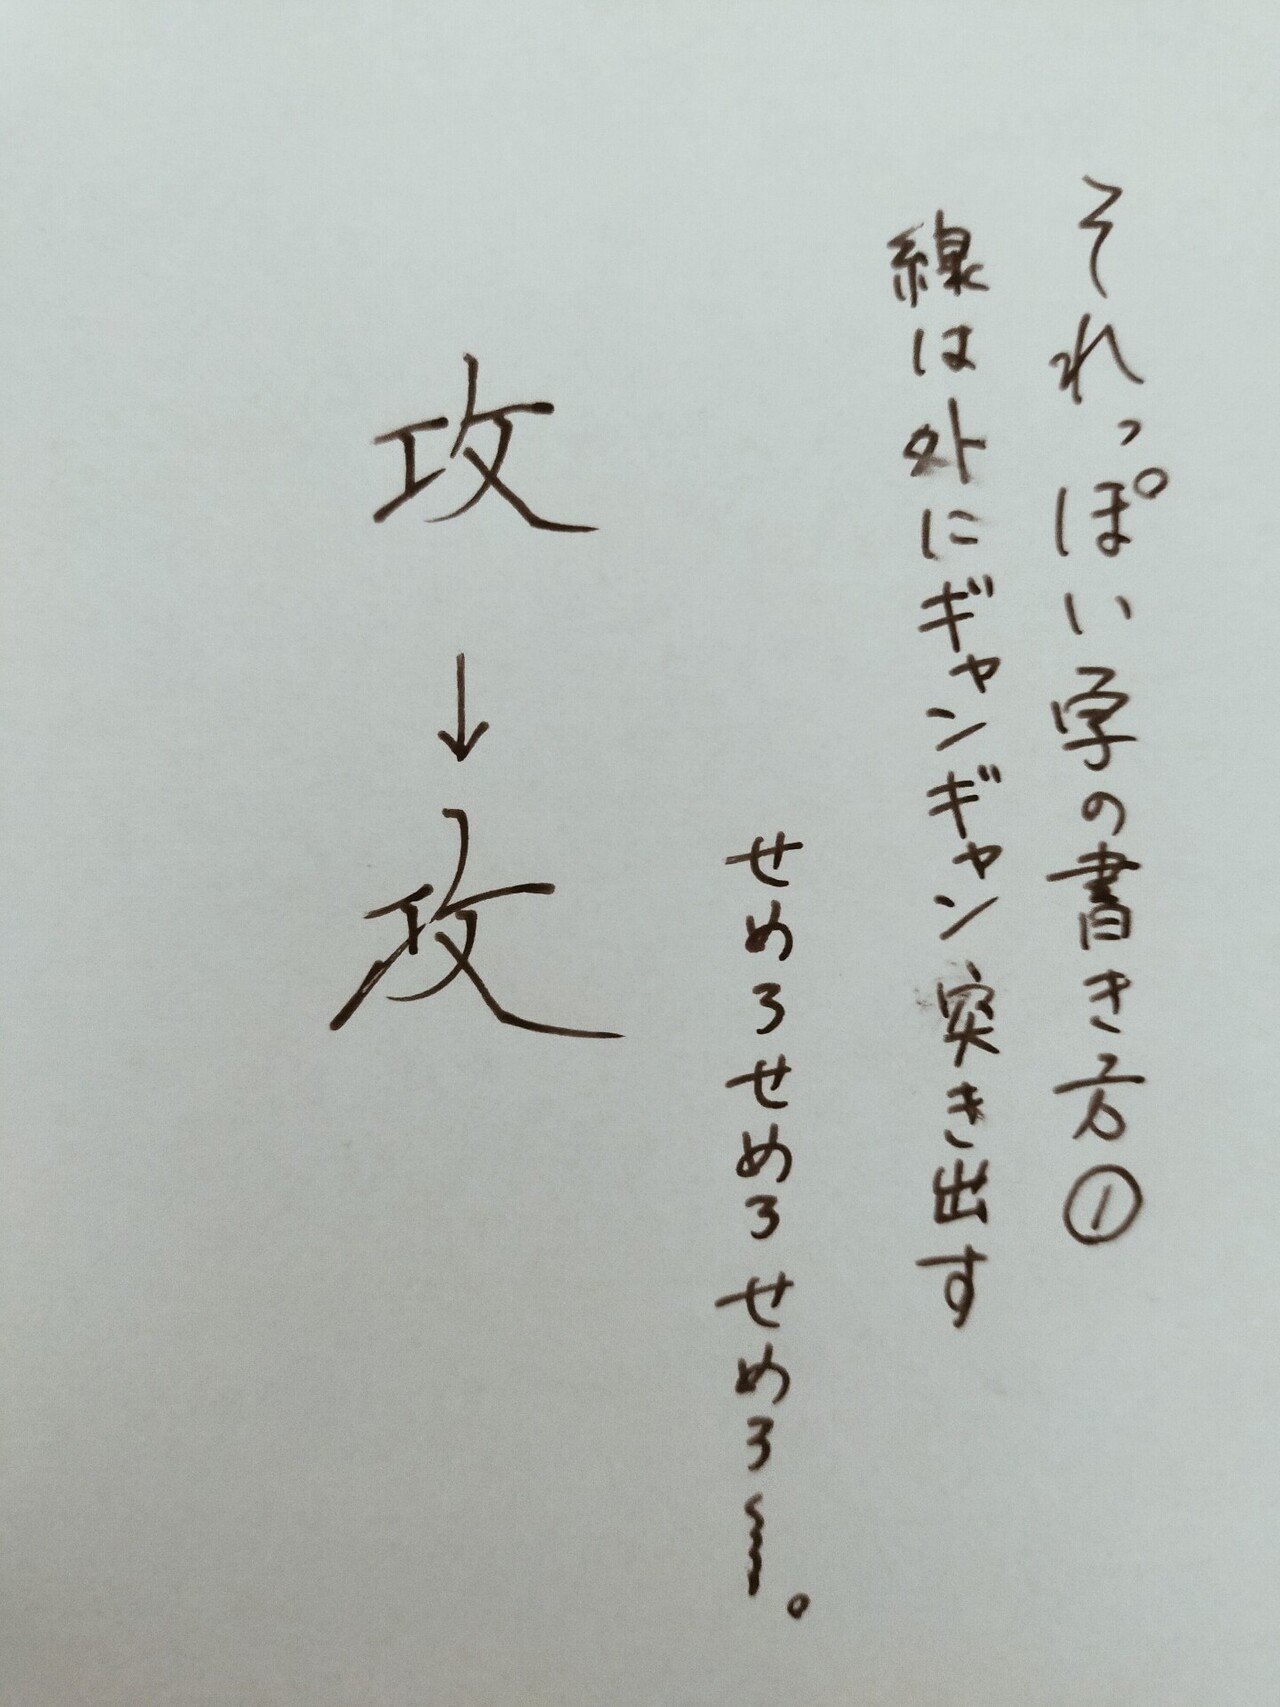 それっぽい字の書き方①
線は外にギャンギャン突き出す
せめろせめろせめろ〜。
攻
↓
攻